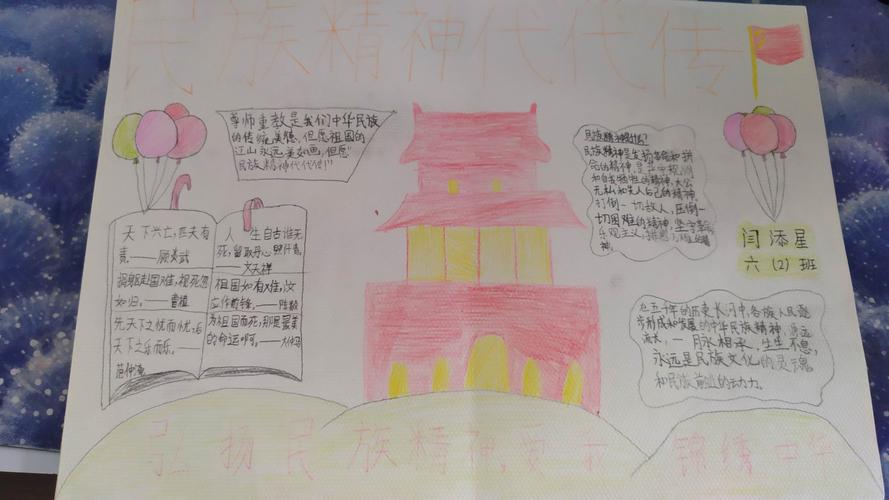 民族精神代代传
尊师重教是我们中华民族
的传统美德,但愿祖国的
江山永远美如画,但愿"
民族精神代代传!"
天下兴亡,匹夫有
责。——顾炎武
捐躯赴国难,视死忽
如归。——曹植
先天下之忧而忧,后
天下之乐而乐。——
范仲淹
人生自古谁无
死,留取丹心照汗青。
——文天祥
祖国如有难,汝
应作前锋。——陈毅
为祖国而死,那是最美
的命运啊。——大仲马
民族精神是什么?
民族精神是发扬革命和拼
命的精神,是
和自我牺牲的精神,大公
无私和先人后己的精神,
打倒一切敌人,压倒一
切困难的精神,坚守革命
乐观主义,排
神。
闫添星
六(2)班
在五千年的历史长河中,各族人民逐
步形成和发展的中华民族精神,源远
流大,一脉相承,生生不息,
永远是民族文化的灵魂
和民族前业的动力。
弘扬民族精神,爱我锦绣中华